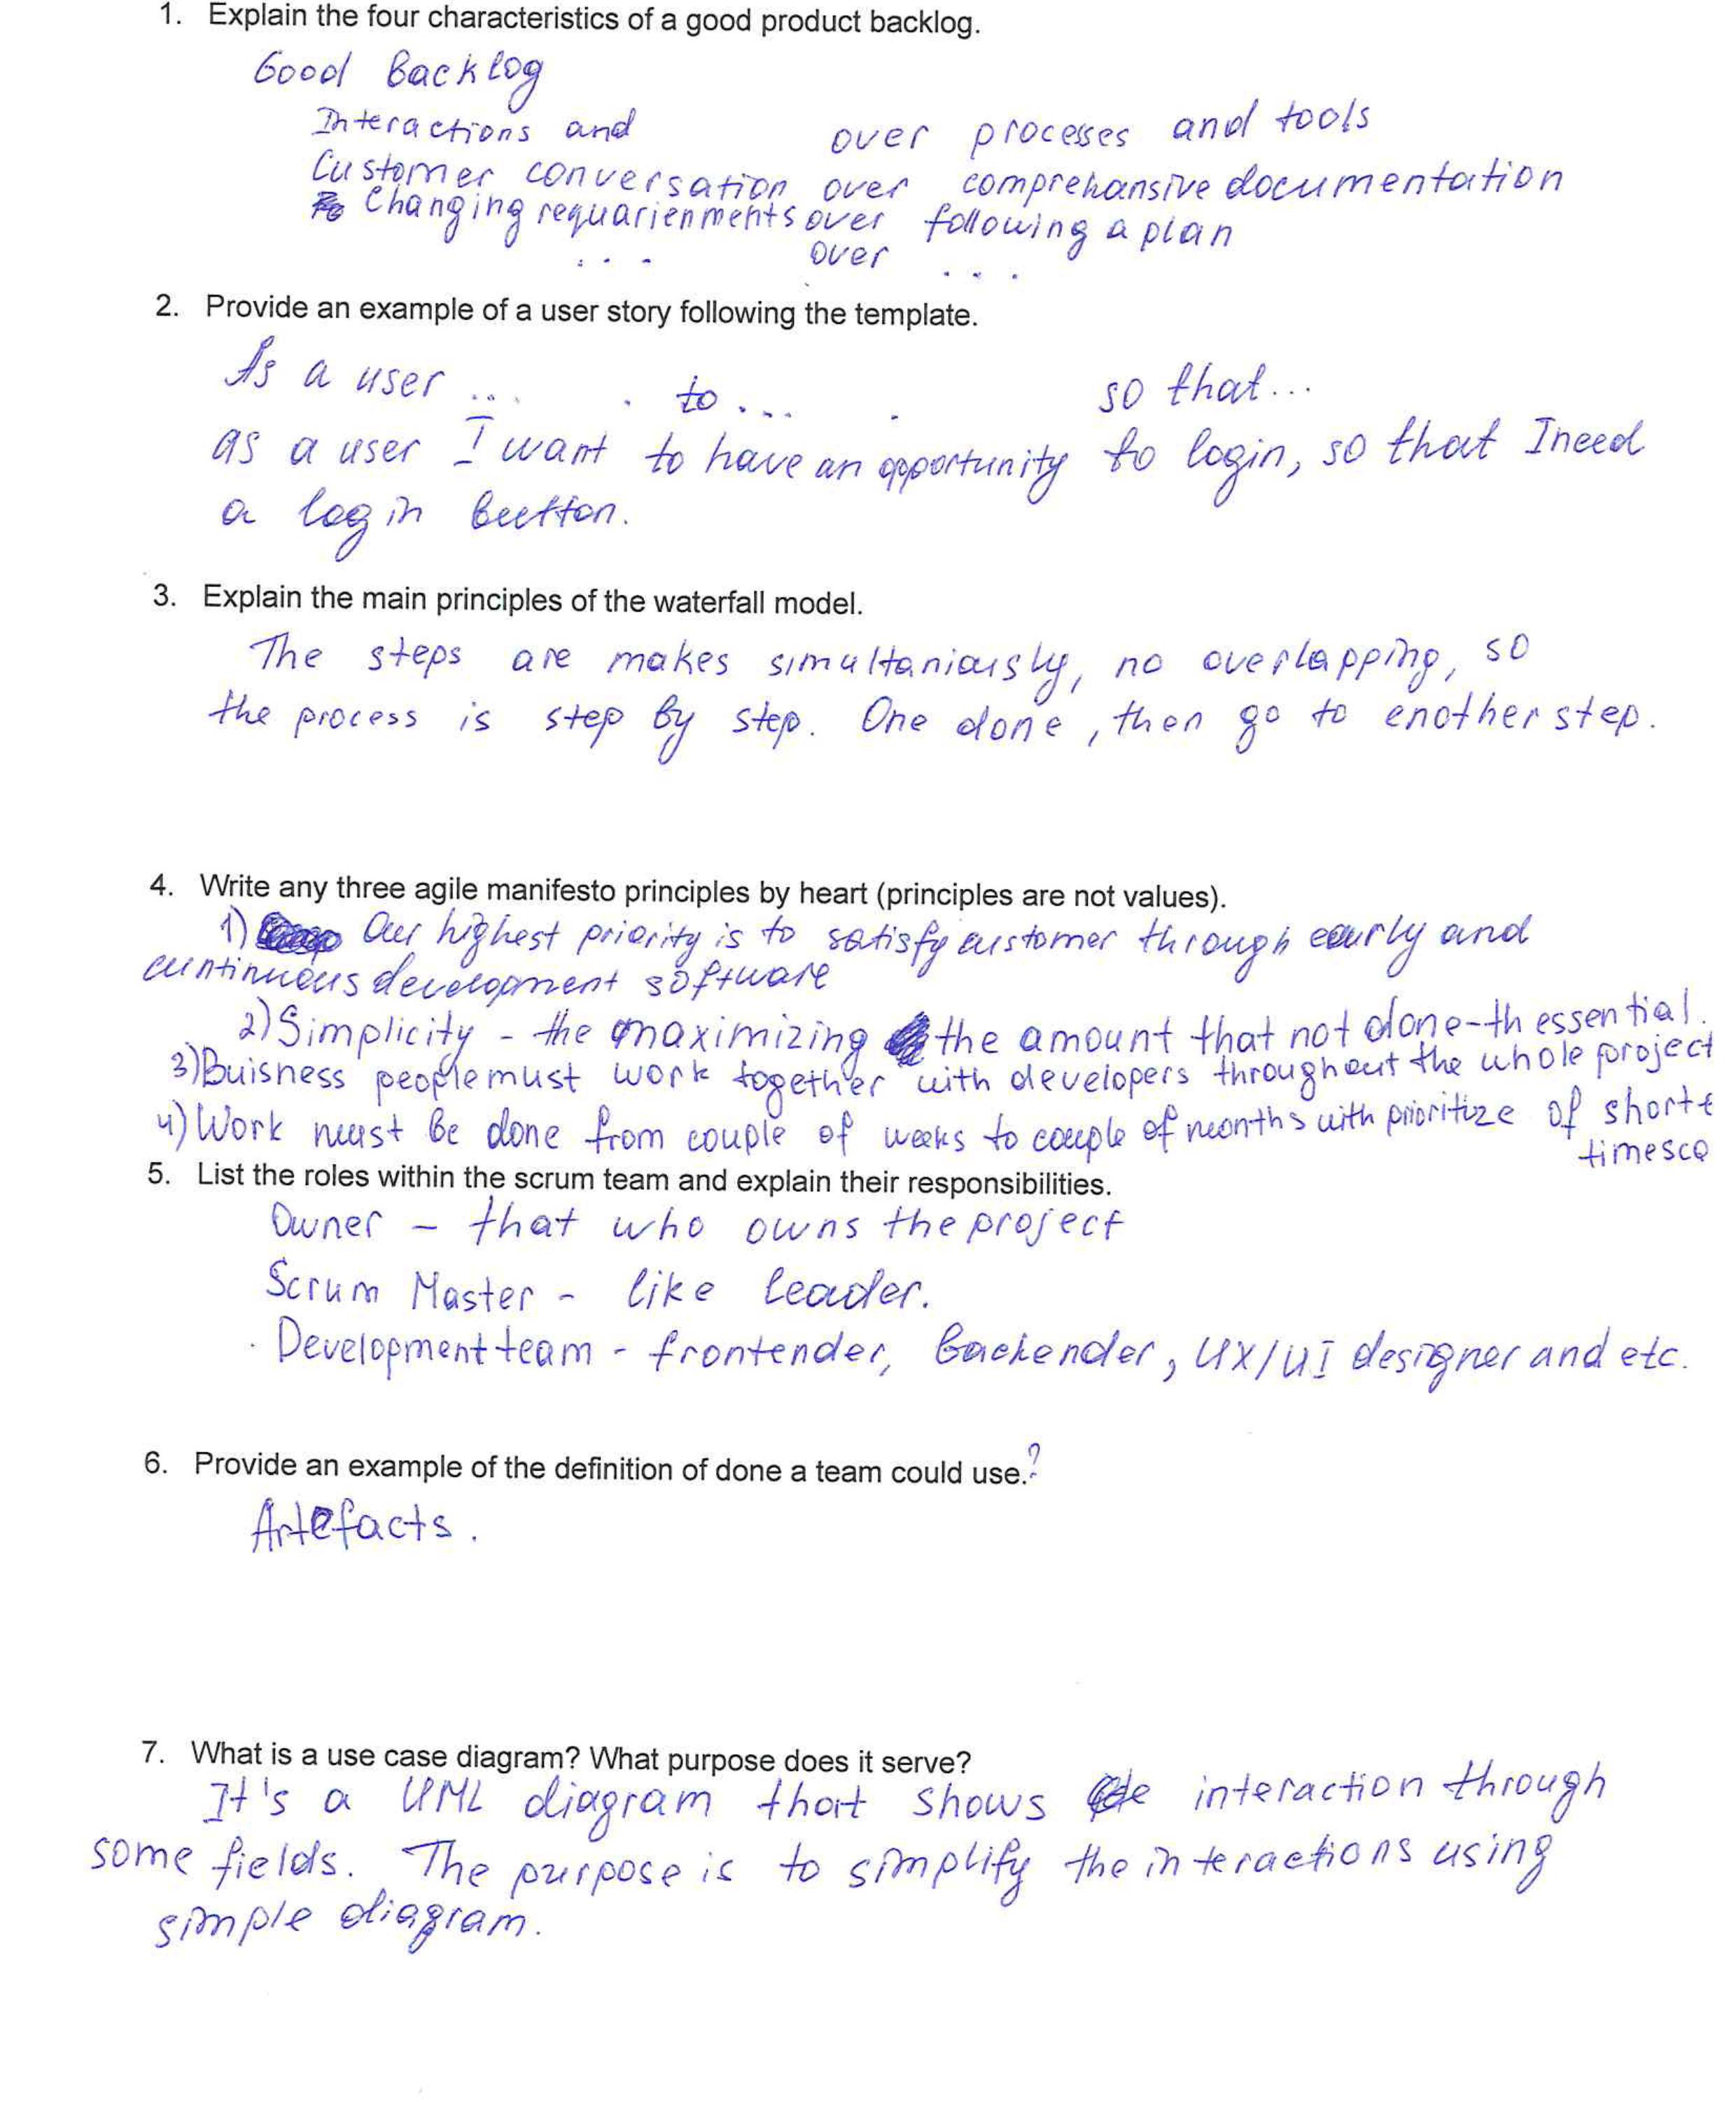 1. Explain the four characteristics of a good product backlog.
Good Backlog
Interactions and over processes and tools
Customer conversation over comprehansive documentation
Changing requarienments over following a plan
... over ...
2. Provide an example of a user story following the template.
As a user ... to ... so that...
as a user I want to have an opportunity to login, so that I need
a login button.
3. Explain the main principles of the waterfall model.
The steps are makes simultaniously, no overlapping, so
the process is step by step. One done, then go to enother step.
4. Write any three agile manifesto principles by heart (principles are not values).
1) Our highest priority is to satisfy customer through early and
continuous development software
2) Simplicity - the maximizing the amount that not done-th essential.
3) Buisness people must work together with developers throughout the whole project
4) Work must be done from couple of weeks to couple of months with prioritize of shorte
timesca
5. List the roles within the scrum team and explain their responsibilities.
Owner - that who owns the project
Scrum Master - like leader.
Development team - frontender, backender, UX/UI designer and etc.
6. Provide an example of the definition of done a team could use.?
Artefacts.
7. What is a use case diagram? What purpose does it serve?
It's a UML diagram that shows interaction through
some fields. The purpose is to simplify the interactions using
simple diagram.